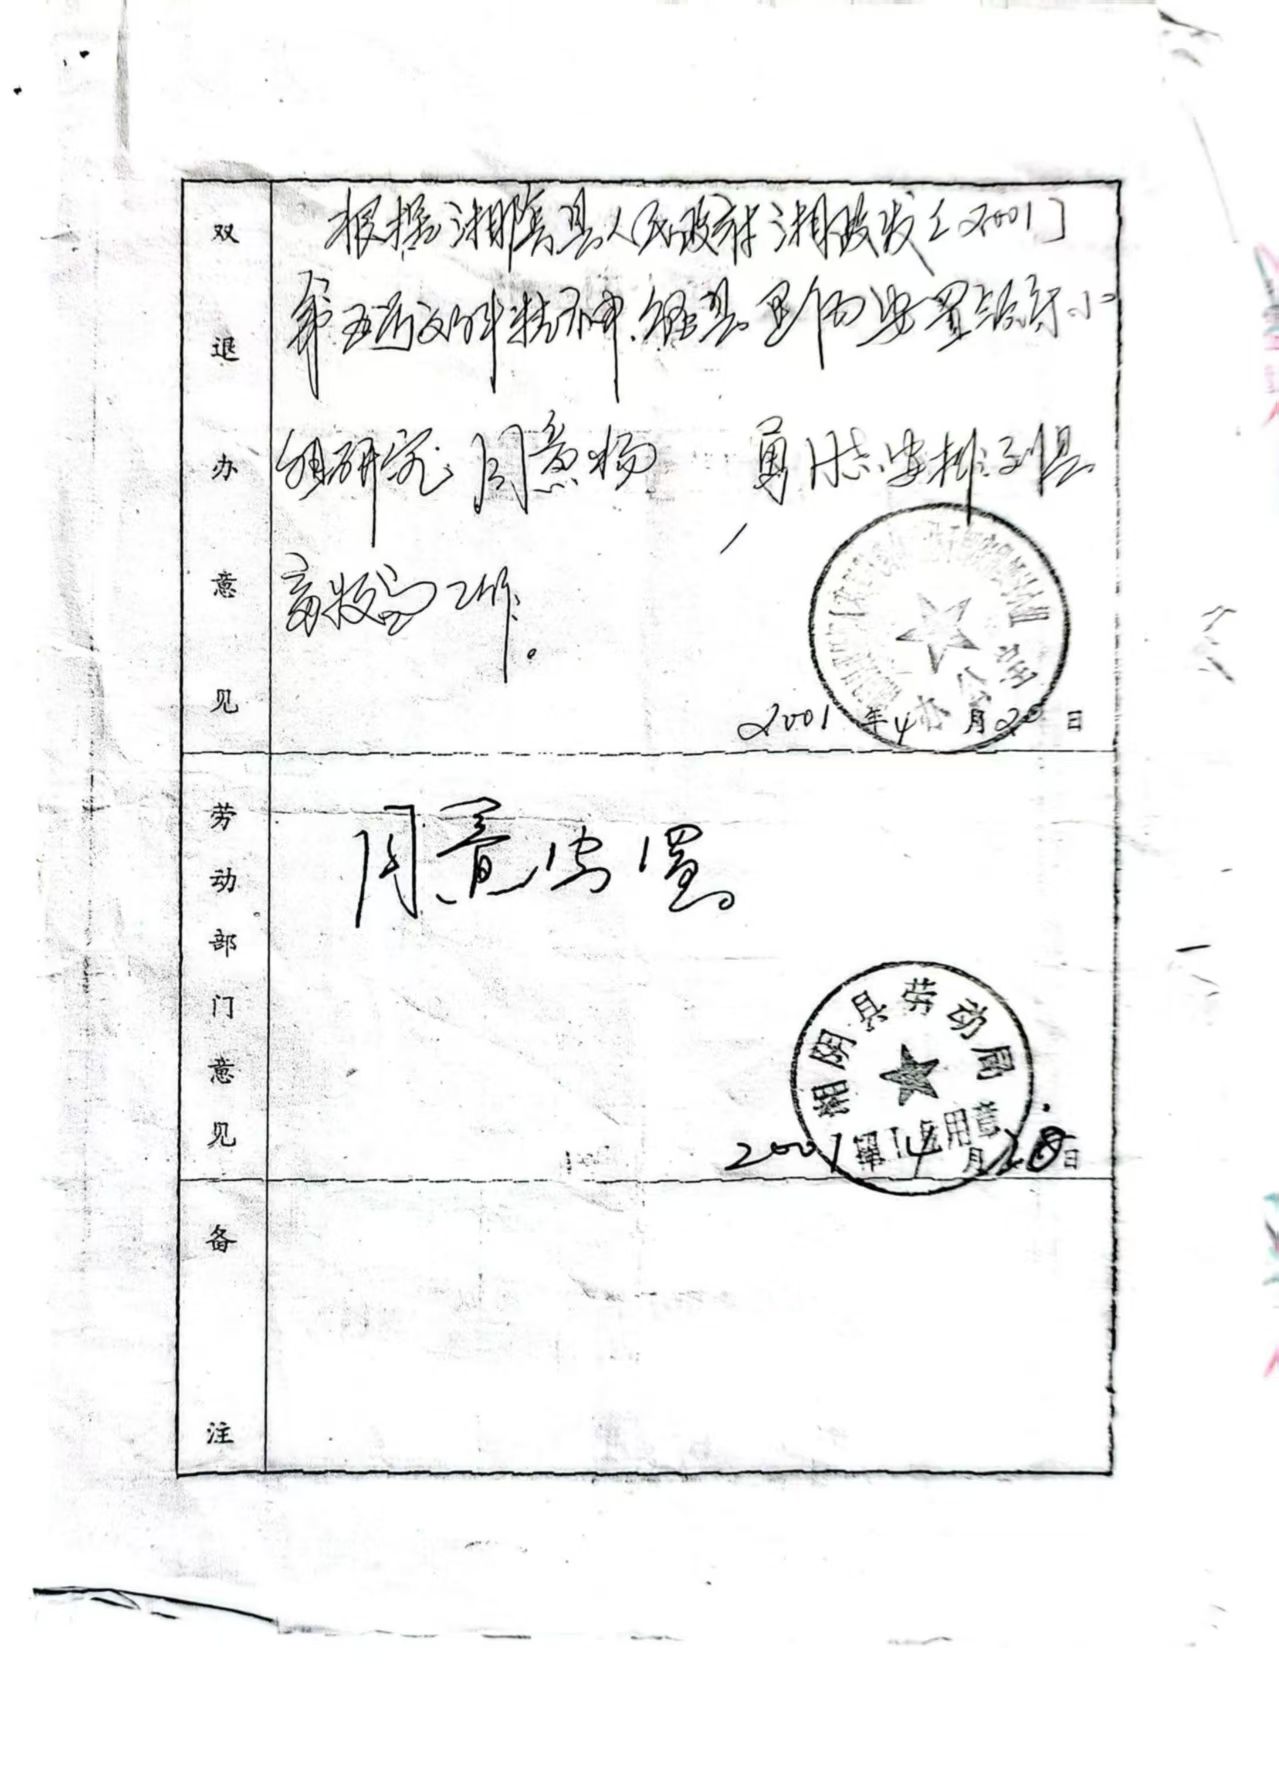 双退办意见
根据湘阴县人民政府湘政发[2001]
第五号文件精神,经县
安置领导小
组研究同意杨 勇同志安排到县
畜牧局工作。
办公室
2001年4月20日
劳动部门意见
同意安置。
湘阴县劳动局
2001年4月28日
备注